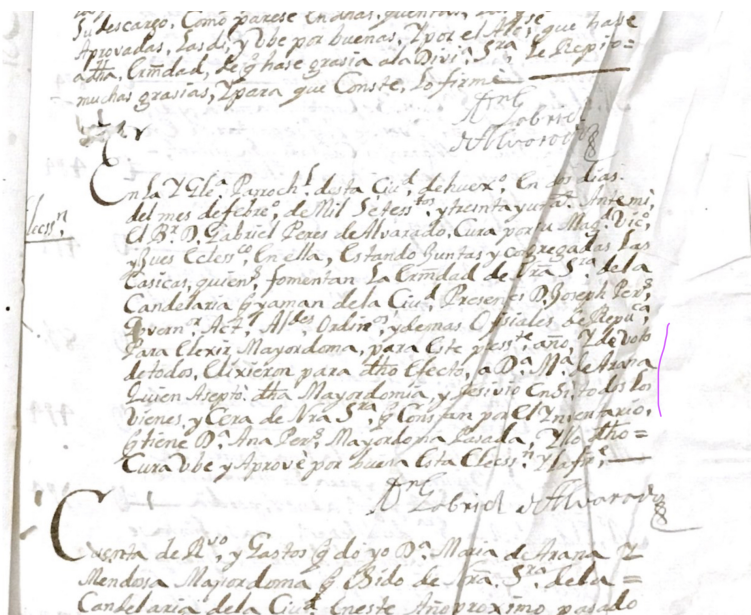 Su descargo, Como parese en dhas, quentas,
Aprovadas, Lasdi, y Vbe por buenas, Y por el Alc, que hase
adha, Ermdad, de q hase grasia ala Divi.ª Sra, Le Repito=
muchas grasias, Y para que Conste, Lo firme
Gabriel
de Alvarado
En La Yglª Paroch.l desta Ciud. dehuexº, En dos dias
del mes defebrº, de Mil Setess.tos, ytreinta yun.ª Antemi,
El Br. D. Gabriel Peres de Alvarado, Cura por su Magd. Vicº,
y Jues Ecless.co, En ella, Estando Juntas y cogregadas Las
Elecss.n,
Casicas, quien.s, fomentan La Ermdad de Nra Sra. dela
Candelaria q yaman dela Ciud, Presenes D. Joseph Per.s,
Govern.r Act.l, Al.des, Ordin.s, ydemas Ofisiales de Repu.ca,
Para Elexir Mayordoma, para Este press.te, año, Y de Voto
detodos, Elixieron para dho Efecto, a D.ª M.ª de Arana
Quien Aseptó. dha Mayordomia, y Resivio En Si, todos Los
Vienes, y Cera de Nra Sra. q Constan por El Ynventario,
q tiene D.ª Ana Per.s, Mayordoma Pasada, Y Yo dho=
Cura Vbe y Aprovè por buena Esta Elecss.n Y lafr.e
Gabriel de Alvarado
Cuenta de R.vo, y Gastos q do yo D.ª Maria de Arana Y
Mendosa Mayordoma q Bido de Nra. Sra. dela=
Candelaria dela Ciud. Eneste Año proximo pasado